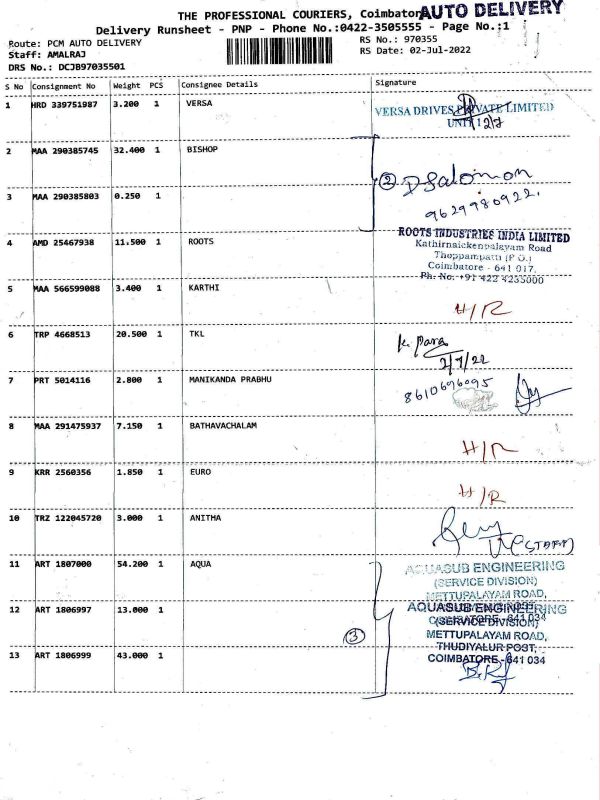 THE PROFESSIONAL COURIERS, Coimbator
AUTO DELIVERY
Delivery Runsheet - PNP - Phone No.:0422-3505555 - Page No.:1
Route: PCM AUTO DELIVERY
RS No.: 970355
Staff: AMALRAJ
RS Date: 02-Jul-2022
DRS No.: DCJB97035501
S No Consignment No Weight PCS Consignee Details Signature
1 HRD 339751987 3.200 1 VERSA
VERSA DRIVES PRIVATE LIMITED
UNIT 1 2/7
2 MAA 290385745 32.400 1 BISHOP
2 D Salomon
9629980922.
3 MAA 290385803 0.250 1
4 AMD 25467938 11.500 1 ROOTS
ROOTS INDUSTRIES INDIA LIMITED
Kathirnaickenpalayam Road
Thoppampatti (P.O.)
Coimbatore - 641 017.
Ph: No. +91 422 4235000
5 MAA 566599088 3.400 1 KARTHI
H/R
6 TRP 4668513 20.500 1 TKL
K. Para
2/7/22
7 PRT 5014116 2.800 1 MANIKANDA PRABHU
8610696095
8 MAA 291475937 7.150 1 BATHAVACHALAM
H/R
9 KRR 2560356 1.850 1 EURO
H/R
10 TRZ 122045720 3.000 1 ANITHA
(STAFF)
11 ART 1807000 54.200 1 AQUA
AQUASUB ENGINEERING
(SERVICE DIVISION)
METTUPALAYAM ROAD,
12 ART 1806997 13.000 1
3
AQUASUB ENGINEERING
(SERVICE DIVISION)
METTUPALAYAM ROAD,
THUDIYALUR POST,
COIMBATORE - 641 034
13 ART 1806999 43.000 1